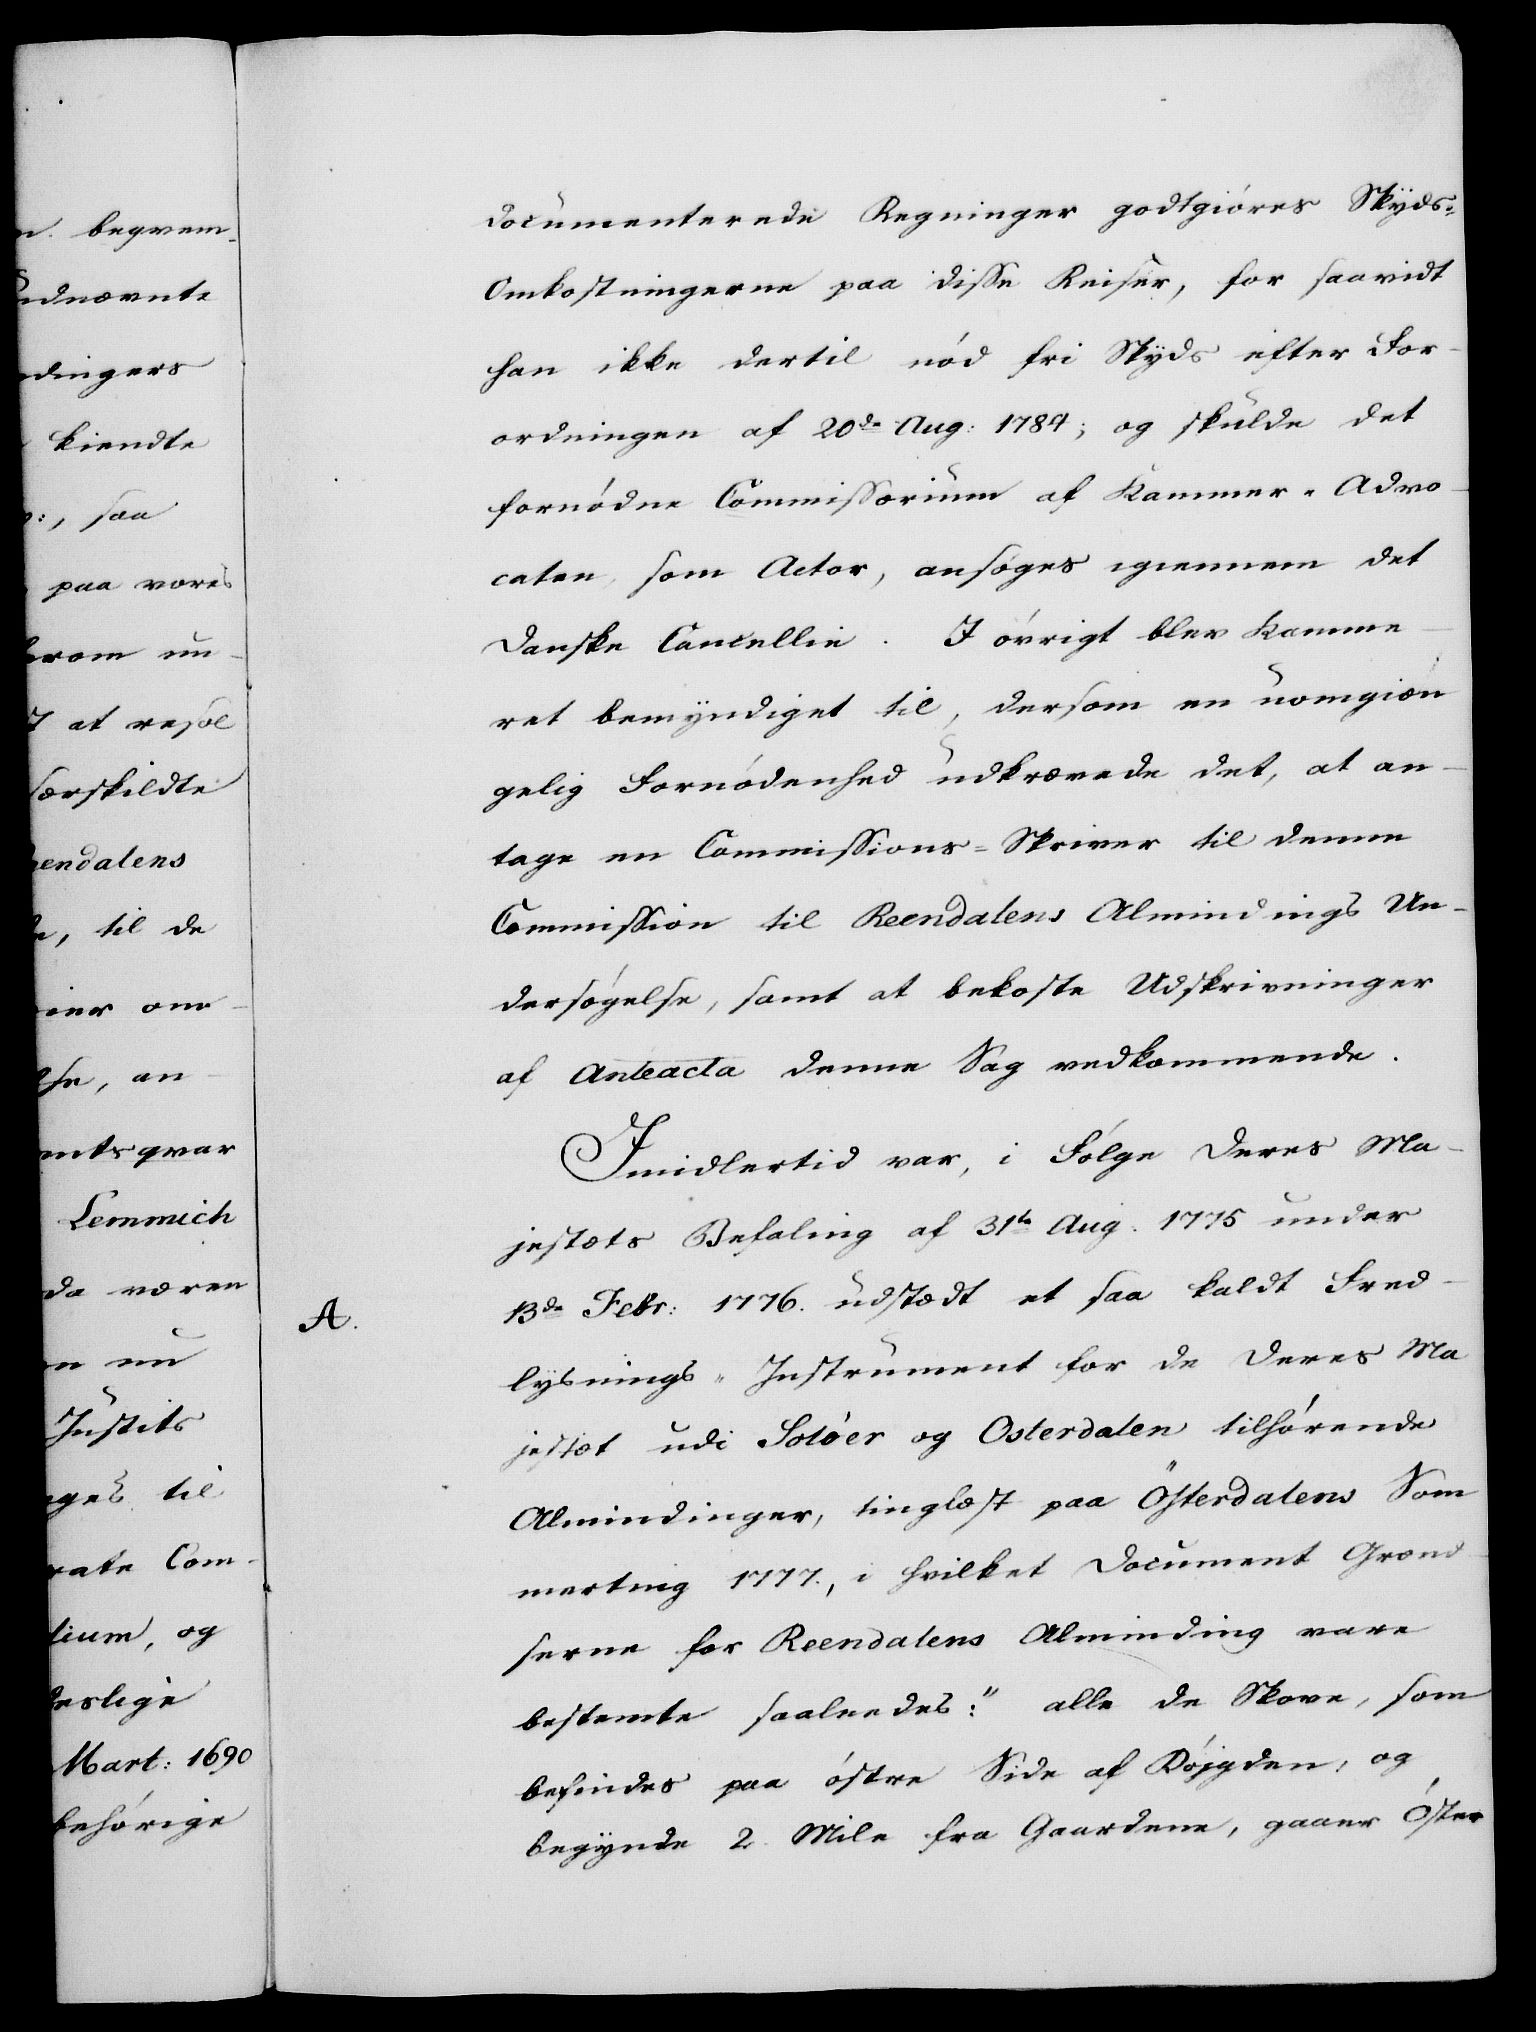 n. beqvem-
ednævnte
dingers
kiendte
:, saa
paa vores
erom un-
at resol
særskildte
endalens
e, til de
ier om-
lse, an-
mtsqvar
Lemmich
da væren
n nu
Justits
ges til
rate Com-
lium, og
deslige
Mart: 1690
behörige
documenterede Regninger godtgiöres Skyds-
Omkostningerne paa disse Reiser, for saavidt
han ikke dertil nöd fri Skyds efter For-
ordningen af 20de Aug: 1784; og skulde det
fornödne Commissorium af Kammer-Advo-
caten, som Actor, ansöges igiennem det
danske Cancellie. I övrigt blev Kamme-
ret bemyndiget til, dersom en uomgiæn
gelig Fornödenhed udkrævede det, at an-
tage en Commissions-Skriver til denne
Commission til Reendalens Almindings Un-
dersögelse, samt at bekoste Udskrivninger
af Anteacta denne Sag vedkommende.
Imidlertid var, i Fölge Deres Ma-
jestæts Befaling af 31te Aug. 1775 under
A.
13de Febr: 1776. udstædt et saa kaldt Fred-
lysnings-Instrument for de Deres Ma
jestæt udi Solöer og Osterdalen tilhörende
Almindinger, tinglæst paa Österdalens Som
merting 1777., i hvilket Document Grænd-
serne for Reendalens Alminding vare
bestemte saaledes: "alle de Skove, som
befindes paa östre Side af Böygden, og
begynde 2 Mile fra Gaardene, gaaer Öster